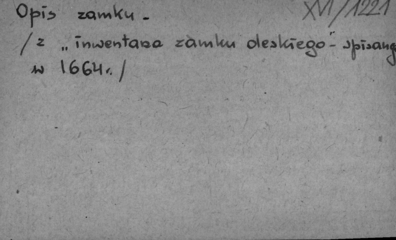 Opis zamku -
XVI/1221
/z „inwentarza zamku oleskiego" - spisany
w 1664r./